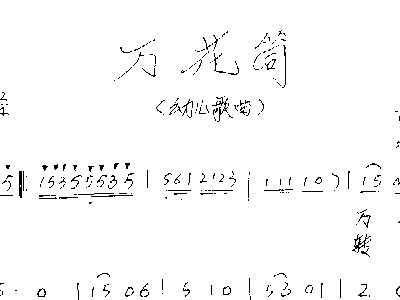 万花筒
(幼儿歌曲)
5 ‖: 1 5 3 5 5 5 3 5 | 5 6 1 2 1 2 3 | 1 1 1 1 0 ) | 1 5
万
转
5 · 0 | 1 5 0 6 | 5 1 0 | 5 3 0 1 | 2